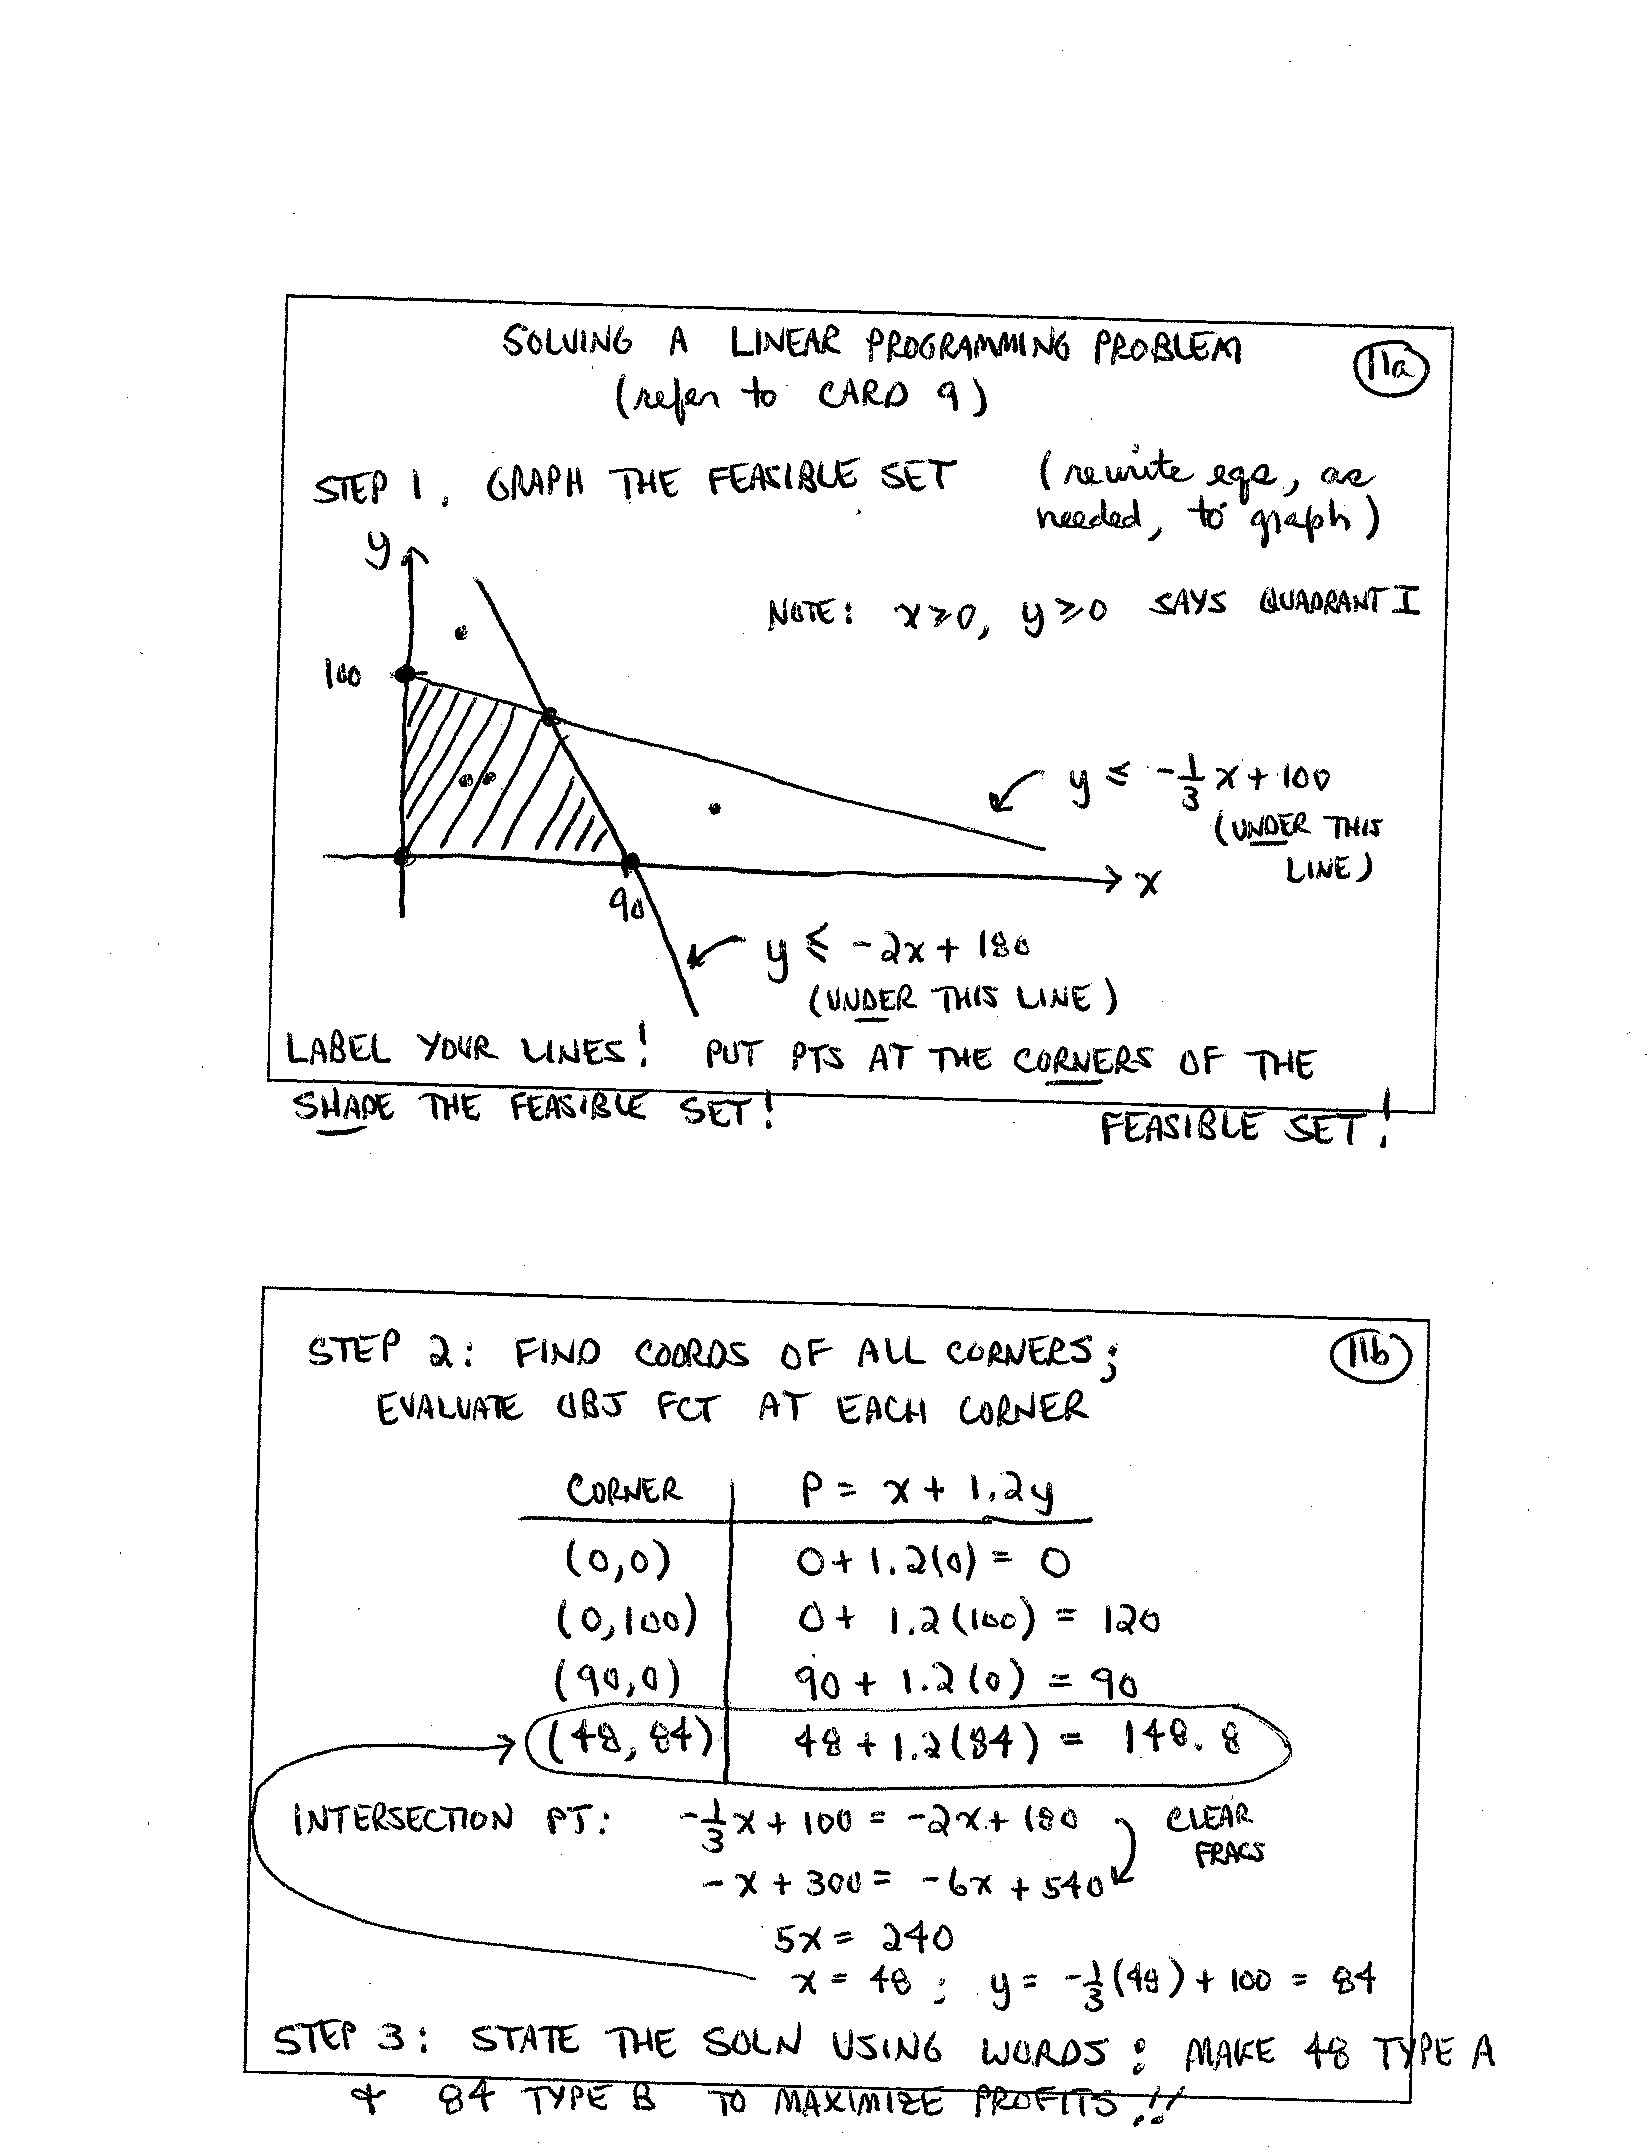 SOLVING A LINEAR PROGRAMMING PROBLEM
11a
(refer to CARD 9)
STEP 1. GRAPH THE FEASIBLE SET (rewrite eqs, as
needed, to graph)
y
NOTE: x≥0, y≥0 SAYS QUADRANT I
100
y ≤ -1/3 x + 100
(UNDER THIS
LINE)
x
90
y ≤ -2x + 180
(UNDER THIS LINE)
LABEL YOUR LINES! PUT PTS AT THE CORNERS OF THE
SHADE THE FEASIBLE SET! FEASIBLE SET!
STEP 2: FIND COORDS OF ALL CORNERS;
11b
EVALUATE OBJ FCT AT EACH CORNER
CORNER P = x + 1.2y
(0,0) 0 + 1.2(0) = 0
(0,100) 0 + 1.2(100) = 120
(90,0) 90 + 1.2(0) = 90
(48,84) 48 + 1.2(84) = 148.8
INTERSECTION PT: -1/3 x + 100 = -2x + 180 CLEAR
FRACS
-x + 300 = -6x + 540
5x = 240
x = 48 ; y = -1/3(48) + 100 = 84
STEP 3: STATE THE SOLN USING WORDS: MAKE 48 TYPE A
+ 84 TYPE B TO MAXIMIZE PROFITS!!